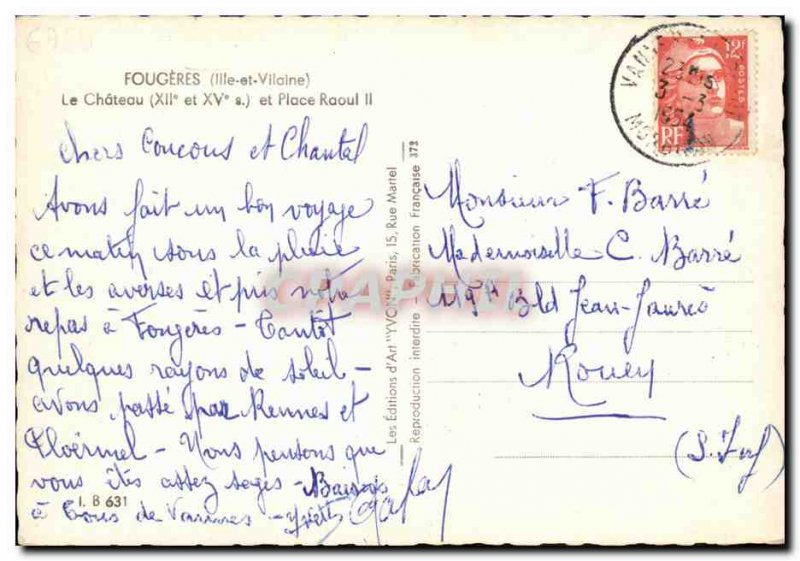 FOUGÈRES (Ille-et-Vilaine)
Le Château (XIIe et XVe s.) et Place Raoul II
chers Coucous et Chantal
Avons fait un bon voyage
ce matin sous la pluie
et les averses et pris notre
repas à Fougères - Tantôt
quelques rayons de soleil -
avons passé par Rennes et
Ploërmel - Nous pensons que
vous êtes assez sages - Baisers
à tous de Vannes -
I. B 631
Les Editions d'Art "YVON" - Paris, 15, Rue Martel
Reproduction interdite - Fabrication Française 373
VANNES
MORBIHAN
12F
POSTES
RF
Monsieur F. Barré
Mademoiselle C. Barré
Bld Jean-Jaurès
Rouen
(S. Inf)